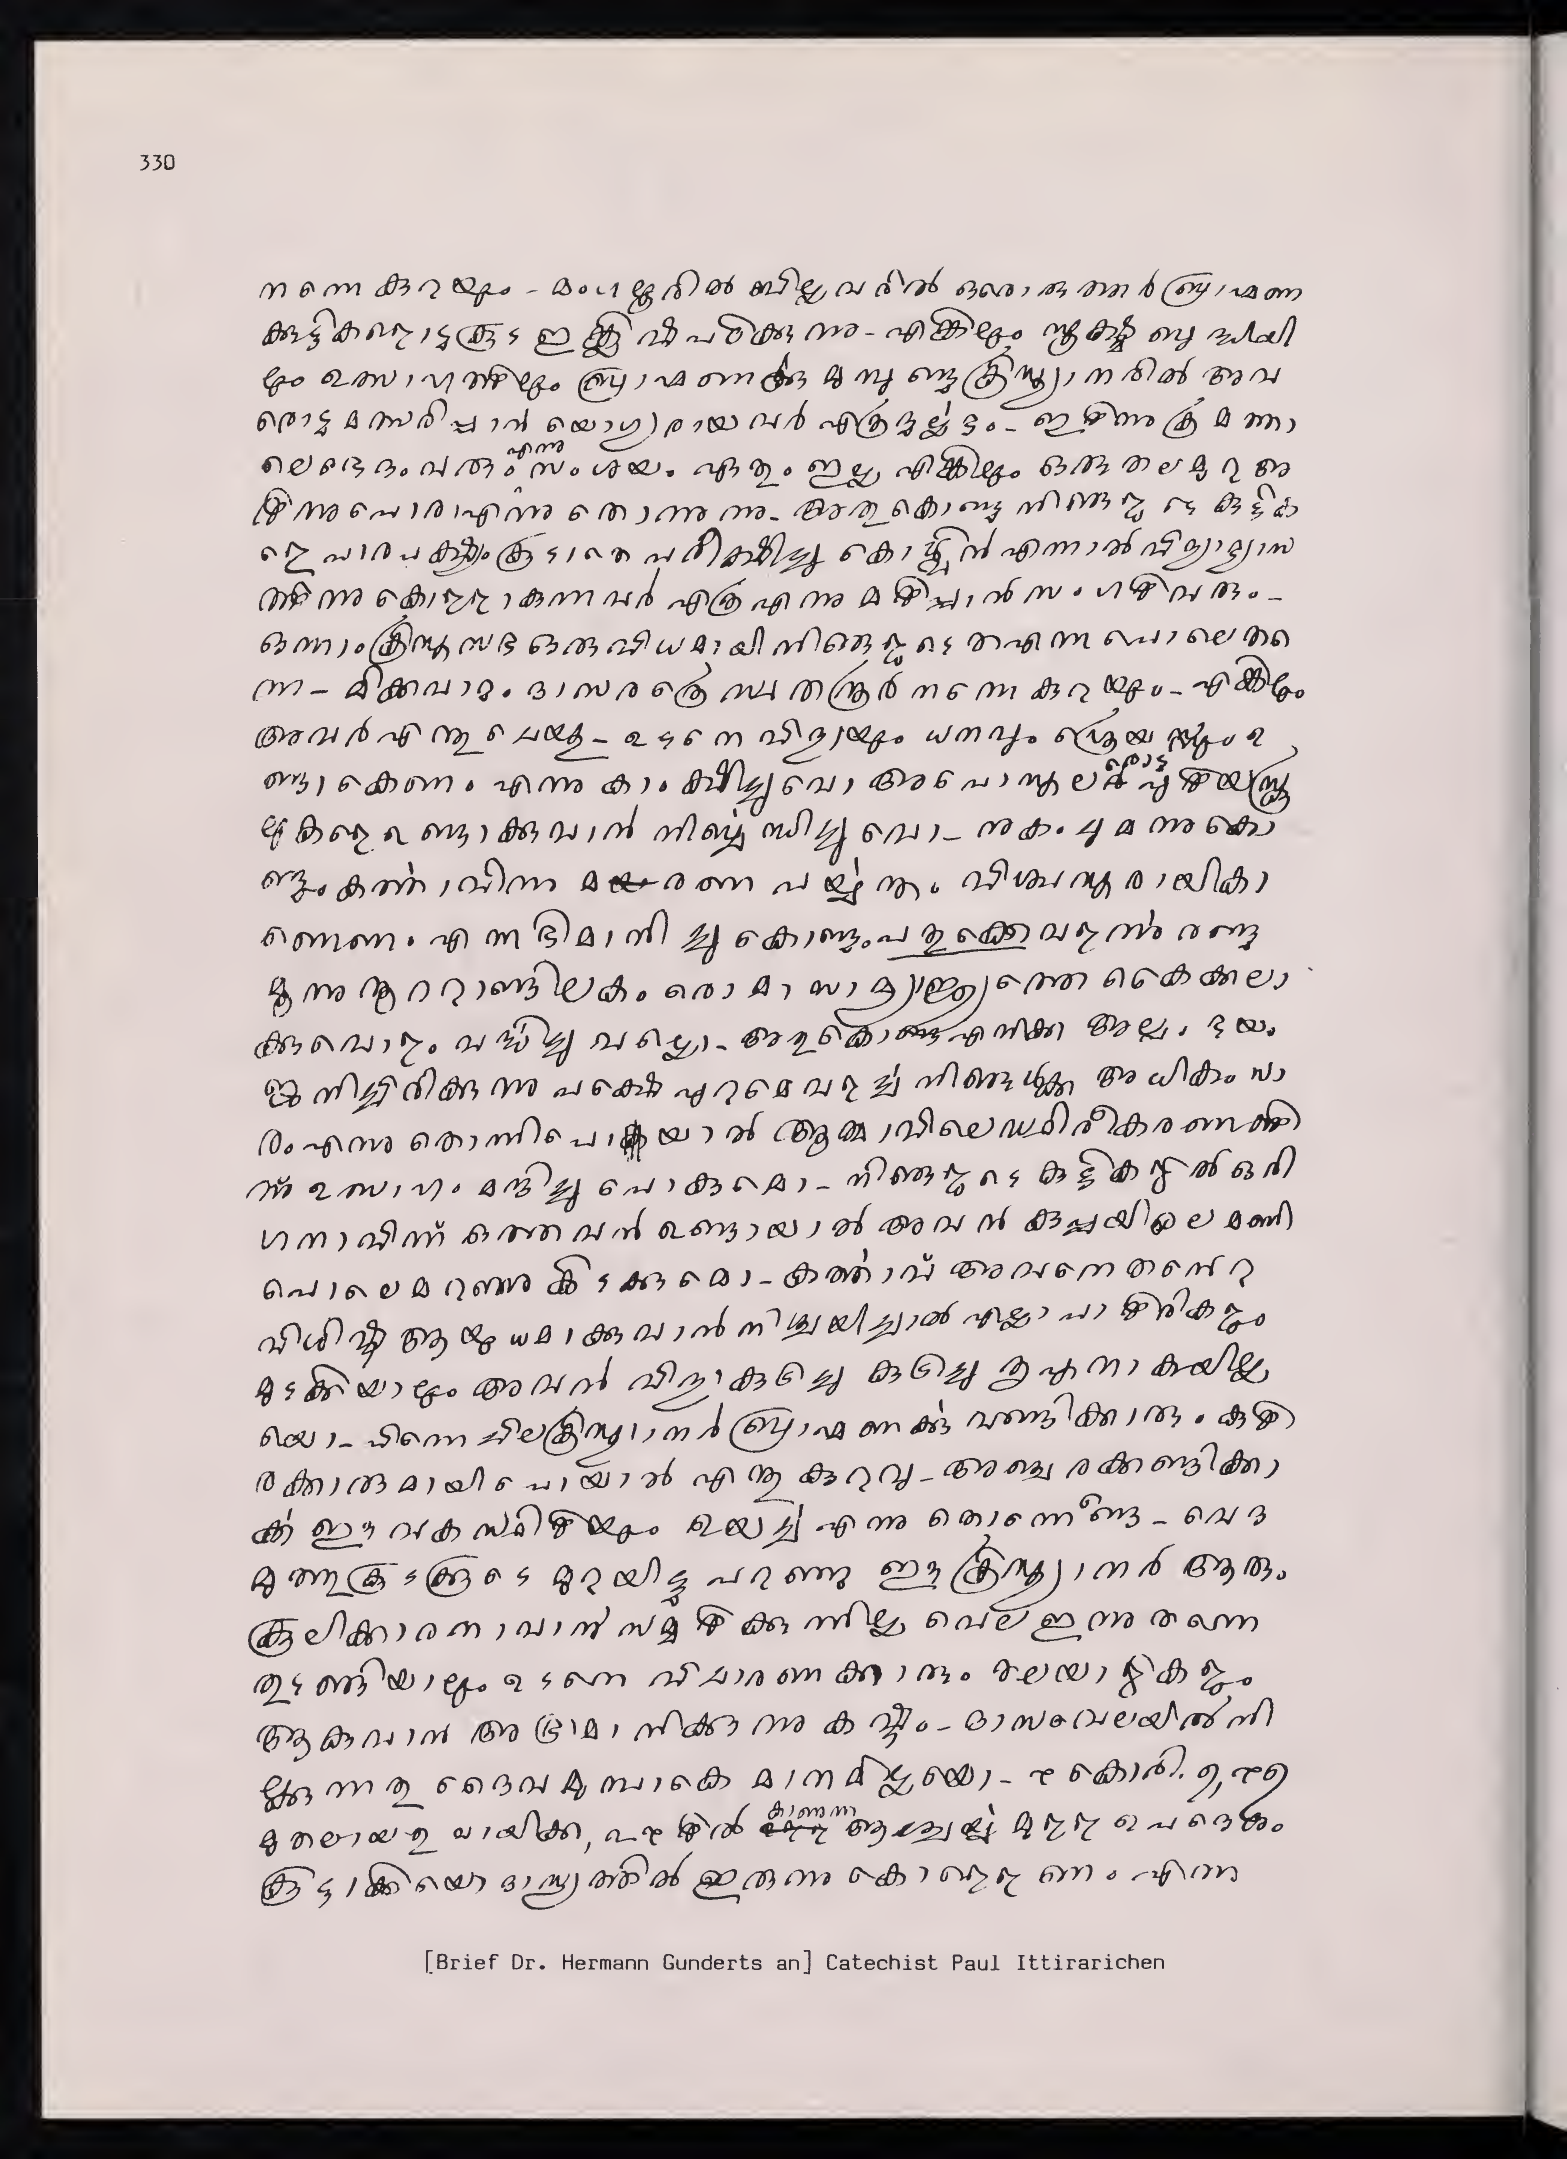 330
നന്നെ കുറയും - മംഗലൂരിൽ ബില്ലവരിൽ ഒരൊരുത്തർ ബ്രാഹ്മണ
കുട്ടികളൊടു കൂട ഇങ്ക്ലിഷ് പഠിക്കുന്നു - എങ്കിലും സൂക്ഷ്മ ബുദ്ധിയി
ലും ഉത്സാഹത്തിലും ബ്രാഹ്മണൎക്കു മുമ്പുണ്ടു ക്രിസ്ത്യാനരിൽ അവ
രൊടു മത്സരിപ്പാൻ യൊഗ്യരായവർ എത്ര ദുൎല്ലഭം - ഇതിന്നു ക്രമത്താ
ലെ ഭെദം വരും എന്നു സംശയം ഏതും ഇല്ല എങ്കിലും ഒരു തലമുറ അ
തിന്നു പൊരാ എന്നു തൊന്നുന്നു - അതുകൊണ്ടു നിങ്ങളുടെ കുട്ടിക
ളെ പാരപക്ഷ്യം കൂടാതെ പരീക്ഷിച്ചു കൊള്ളിൻ എന്നാൽ വിദ്യാഭ്യാസ
ത്തിന്നു കൊള്ളാകുന്നവർ എത്ര എന്നു മതിപ്പാൻ സംഗതി വരും -
ഒന്നാം ക്രിസ്തുസഭ ഒരുവിധമായി നിങ്ങളുടെത എന്ന പൊലെ തന്നെ
ന്ന - മിക്കവാറും ദാസരത്രെ സ്വതന്ത്രർ നന്നെ കുറയും - എങ്കിലും
അവർ എന്തു ചെയ്തു - ഉടനെ വിദ്യയും ധനവും ശ്രെയസ്സും ഉ
ണ്ടാകെണം എന്നു കാംക്ഷിച്ചുവൊ അപൊസ്തലരൊടു എതിയസ്കൂ
ലുകളെ ഉണ്ടാക്കുവാൻ നിൎബ്ബന്ധിച്ചുവൊ - നുകം ചുമന്നുകൊ
ണ്ടും കൎത്താവിന്നു മരണപൎയ്യന്തം വിശ്വസ്തരായി കാ
ണെണം എന്നഭിമാനിച്ചു കൊണ്ടും പതുക്കെ വളൎന്നു രണ്ടു
മൂന്നു നൂറ്റാണ്ടിലകം രൊമാസാമ്രാജ്യത്തെ കൈക്കലാ
ക്കുവൊളം വൎദ്ധിച്ചുവല്ലൊ - അതുകൊണ്ടു എനിക്ക അല്പം ഭയം
ജനിച്ചിരിക്കുന്നു പക്ഷെ ഏറമെ വളൎച്ച നിങ്ങൾക്കു അധികം സാ
രം എന്നു തൊന്നിപൊകയാൽ ആത്മാവിലെ സ്ഥിരീകരണത്തി
ന്ന് ഉത്സാഹം മന്ദിച്ചു പൊകുമൊ - നിങ്ങളുടെ കുട്ടികളിൽ ഒരി
ഗനാവിന്ന് ഒത്തവൻ ഉണ്ടായാൽ അവൻ കുപ്പയിലെ മണി
പൊലെ മറഞ്ഞു കിടക്കുമൊ - കൎത്താവ് അവനെ തന്റെ
വിശിഷ്ട ആയുധമാക്കുവാൻ നിശ്ചയിച്ചാൽ എല്ലാ പാതിരികളും
മുടക്കിയാലും അവൻ വിദ്യ കുടിച്ചു കുടിച്ചു തൃപ്തനാകയില്ല
യൊ - പിന്നെ ചില ക്രിസ്ത്യാനർ ബ്രാഹ്മണൎക്കു വണ്ടിക്കാരും കുതി
രക്കാരുമായി പൊയാൽ എന്തു കുറവു - അഞ്ചെരക്കണ്ടിക്കാ
ൎക്ക ഈ വക സ്ഥിതിയും ഉയൎച്ച എന്നു തൊന്നെണ്ട - വെദ
മുത്തുകൂടക്കൂടെ മുറയിട്ടു പറഞ്ഞു ഈ ക്രിസ്ത്യാനർ ആരും
കൂലിക്കാരനാവാൻ സമ്മതിക്കുന്നില്ല വെല ഇന്നു തന്നെ
തുടങ്ങിയാലും ഉടനെ വിചാരണക്കാരും തലയാളികളും
ആകുവാൻ അഭിമാനിക്കുന്നു കഷ്ടം - ദാസവെലയിൽ നി
ല്ക്കുന്നതു ദൈവമുമ്പാകെ മാനമില്ലയൊ - ൧ കൊരി. ൭, ൧൭
മുതലായതു വായിക്ക, ൨൧തിൽ കാണുന്ന ആശ്ചൎയ്യ മുള്ള ഉപദെശം
കൂട്ടാക്കിയൊ ദാസ്യത്തിൽ ഇരുന്നു കൊള്ളെണം എന്നു
[Brief Dr. Hermann Gunderts an] Catechist Paul Ittirarichen